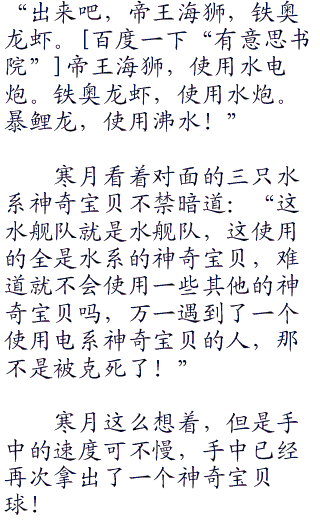 “出来吧，帝王海狮，铁奥
龙虾。[百度一下“有意思书
院”]帝王海狮，使用水电
炮。铁奥龙虾，使用水炮。
暴鲤龙，使用沸水！”
寒月看着对面的三只水
系神奇宝贝不禁暗道：“这
水舰队就是水舰队，这使用
的全是水系的神奇宝贝，难
道就不会使用一些其他的神
奇宝贝吗，万一遇到了一个
使用电系神奇宝贝的人，那
不是被克死了！”
寒月这么想着，但是手
中的速度可不慢，手中已经
再次拿出了一个神奇宝贝
球！